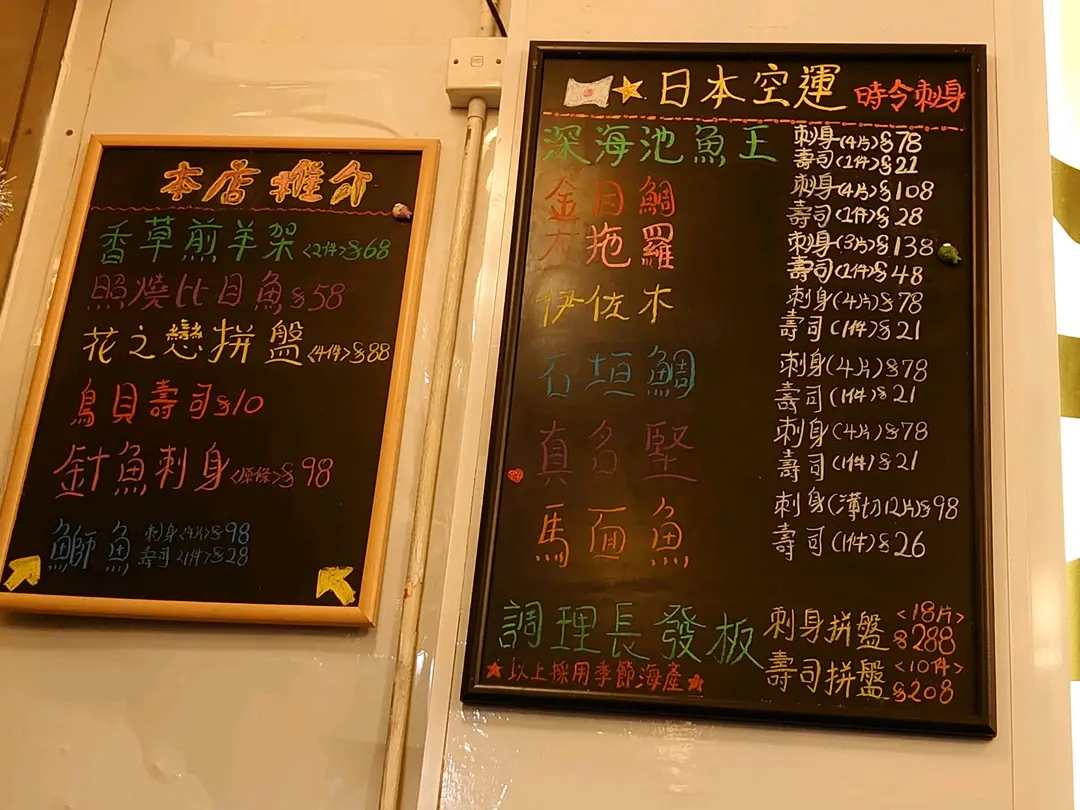 本店推介
香草煎羊架<2件>$68
照燒比目魚$58
花之戀拼盤<4件>$88
鳥貝壽司$10
針魚刺身<原條>$98
鰤魚 刺身<4片>$98
壽司<1件>$28
日本空運 時令刺身
深海池魚王 刺身(4片)$78
壽司(1件)$21
金目鯛 刺身(4片)$108
壽司(1件)$28
左拖羅 刺身(3片)$138
壽司(1件)$48
伊佐木 刺身(4片)$78
壽司(1件)$21
石垣鯛 刺身(4片)$78
壽司(1件)$21
真名堅 刺身(4片)$78
壽司(1件)$21
馬面魚 刺身(薄切12片)$98
壽司(1件)$26
調理長發板 刺身拼盤<18片>$288
壽司拼盤<10件>$208
以上採用季節海產